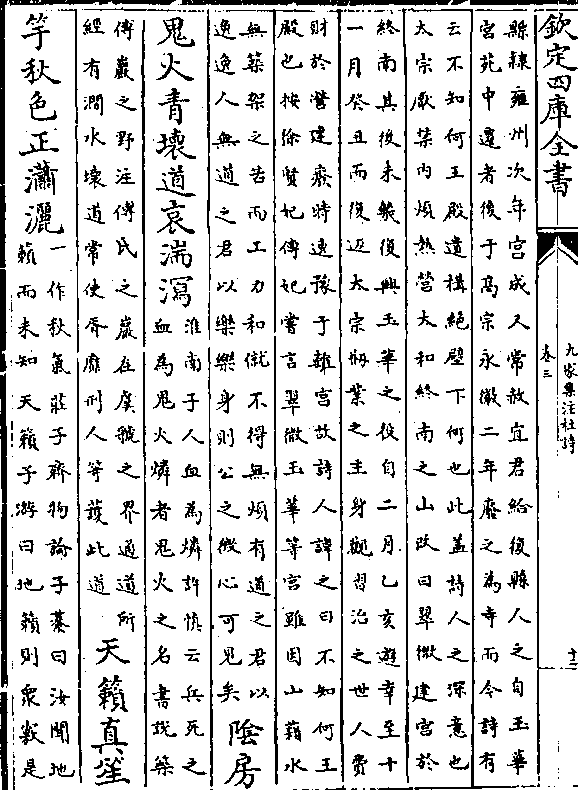 欽定四庫全書
九家集注杜詩
卷三
十二
縣隸雍州次年宮成又常赦宜君給復縣人之自玉華
宮苑中遷者後于高宗永徽二年廢之為寺而今詩有
云不知何王殿遺構絕壁下何也此蓋詩人之深意也
太宗厭禁內煩熱營太和終南之山改曰翠微建宮於
終南其後未幾復興玉華之役自二月乙亥遊幸至十
一月癸丑而復返太宗刱業之主身觀習治之世人費
財於營建廢時速豫于離宮故詩人諱之曰不知何王
殿也按徐賢妃傳妃嘗言翠微玉華等宮雖因山藉水
無築架之苦而工力和僦不得無煩有道之君以
逸逸人無道之君以樂樂身則公之微心可見矣
陰房
鬼火青壞道哀湍瀉
淮南子人血為燐許慎云兵死之
血為鬼火燐者鬼火之名書說築
傅巖之野注傅氏之巖在虞虢之界通道所
經有澗水壞道常使胥靡刑人等護此道
天籟真笙
竽秋色正瀟灑
一作秋氣莊子齊物論子綦曰汝聞地
籟而未知天籟子游曰地籟則衆竅是